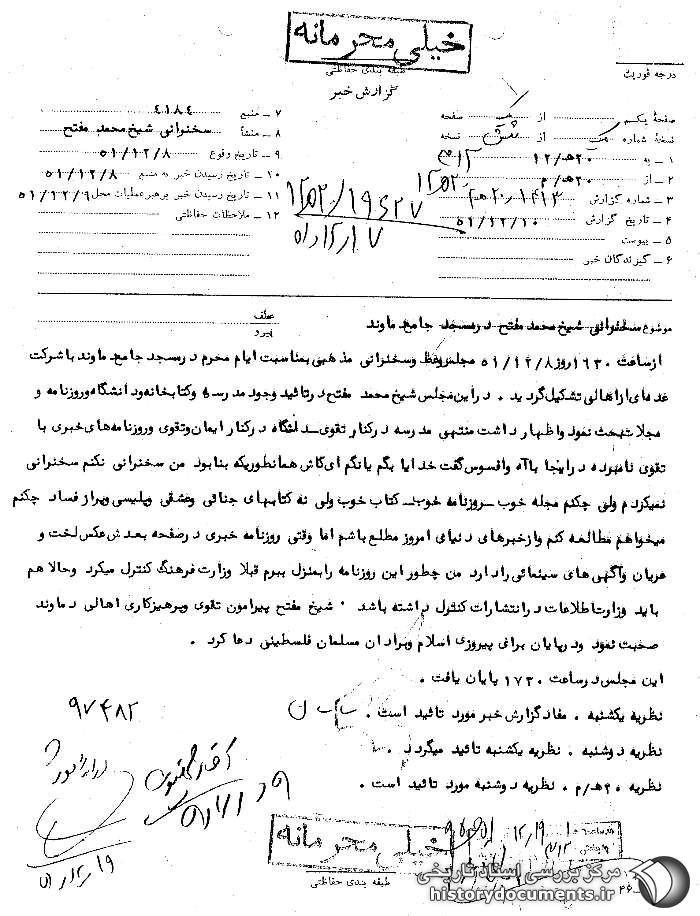 خیلی محرمانه
طبقه بندی حفاظتی
گزارش خبر
درجه فوریت
صفحه یکم از یک صفحه
نسخهٔ شماره یک از شش نسخه
۱ ـ به ۲۰هـ/۱۲
۲ ـ از ۲۰هـ/م
۳ ـ شماره گزارش
۴ ـ تاریخ گزارش ۵۱/۱۲/۱۰
۵ ـ پیوست
۶ ـ گیرندگان خبر
۷ ـ منبع ۴۱۸۴
۸ ـ منشأ سخنرانی شیخ محمد مفتح
۹ ـ تاریخ وقوع ۵۱/۱۲/۸
۱۰ ـ تاریخ رسیدن خبر به منبع ۵۱/۱۲/۸
۱۱ ـ تاریخ رسیدن خبر برهبر عملیات محل ۵۱/۱۲/۹
۱۲ ـ ملاحظات حفاظتی
عطف
پیرو
موضوع سخنرانی شیخ محمد مفتح در مسجد جامع ماوند
از ساعت ۱۶۳۰ روز ۵۱/۱۲/۸ مجلس وعظ و سخنرانی مذهبی بمناسبت ایام محرم در مسجد جامع ماوند با شرکت
عده‌ای از اهالی تشکیل گردید . در این مجلس شیخ محمد مفتح در تائید وجود مدرسه و کتابخانه و دانشگاه و روزنامه و
مجلات بحث نمود و اظهار داشت منتهی مدرسه در کنار تقوی ـ دانشگاه در کنار ایمان و تقوی و روزنامه‌های خبری با
تقوی نامبرده در اینجا با آه و افسوس گفت خدایا بگم یا نگم ای کاش همانطوریکه بنا بود من سخنرانی نکنم سخنرانی
نمیکردم ولی چکنم مجله خوب ـ روزنامه خوب ـ کتاب خوب ولی نه کتابهای جنائی و عشقی و پلیسی و پر از فساد چکنم
میخواهم مطالعه کنم و از خبرهای دنیای امروز مطلع باشم اما وقتی روزنامه خبری در صفحه بعدش عکس لخت و
عریان و آگهی های سینمائی را دارد من چطور این روزنامه را بمنزل ببرم قبلا وزارت فرهنگ کنترل میکرد و حالا هم
باید وزارت اطلاعات در انتشارات کنترل داشته باشد . شیخ مفتح پیرامون تقوی و پرهیزکاری اهالی دماوند
صحبت نمود و در پایان برای پیروزی اسلام و برادران مسلمان فلسطینی دعا کرد .
این مجلس در ساعت ۱۷۳۰ پایان یافت .
نظریه یکشنبه . مفاد گزارش خبر مورد تائید است .
نظریه دوشنبه . نظریه یکشنبه تائید میگردد .
نظریه ۲۰هـ/م . نظریه دوشنبه مورد تائید است .
۹۷۴۸۲
خیلی محرمانه
طبقه بندی حفاظتی
مرکز بررسی اسناد تاریخی
historydocuments.ir